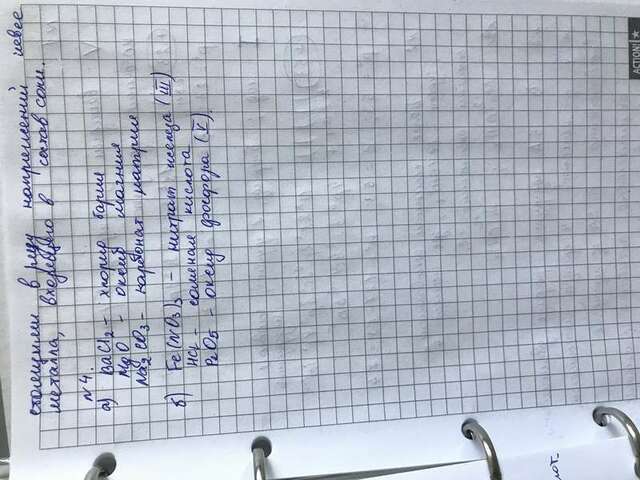 стоящими в ряду напряжений левее
металла, входящего в состав соли.
№4.
а) BaCl2 - хлорид бария
MgO - оксид магния
Na2CO3 - карбонат натрия
б) Fe(NO3)3 - нитрат железа (III)
HCl - соляная кислота
P2O5 - оксид фосфора (V).
лот-
ACTION!